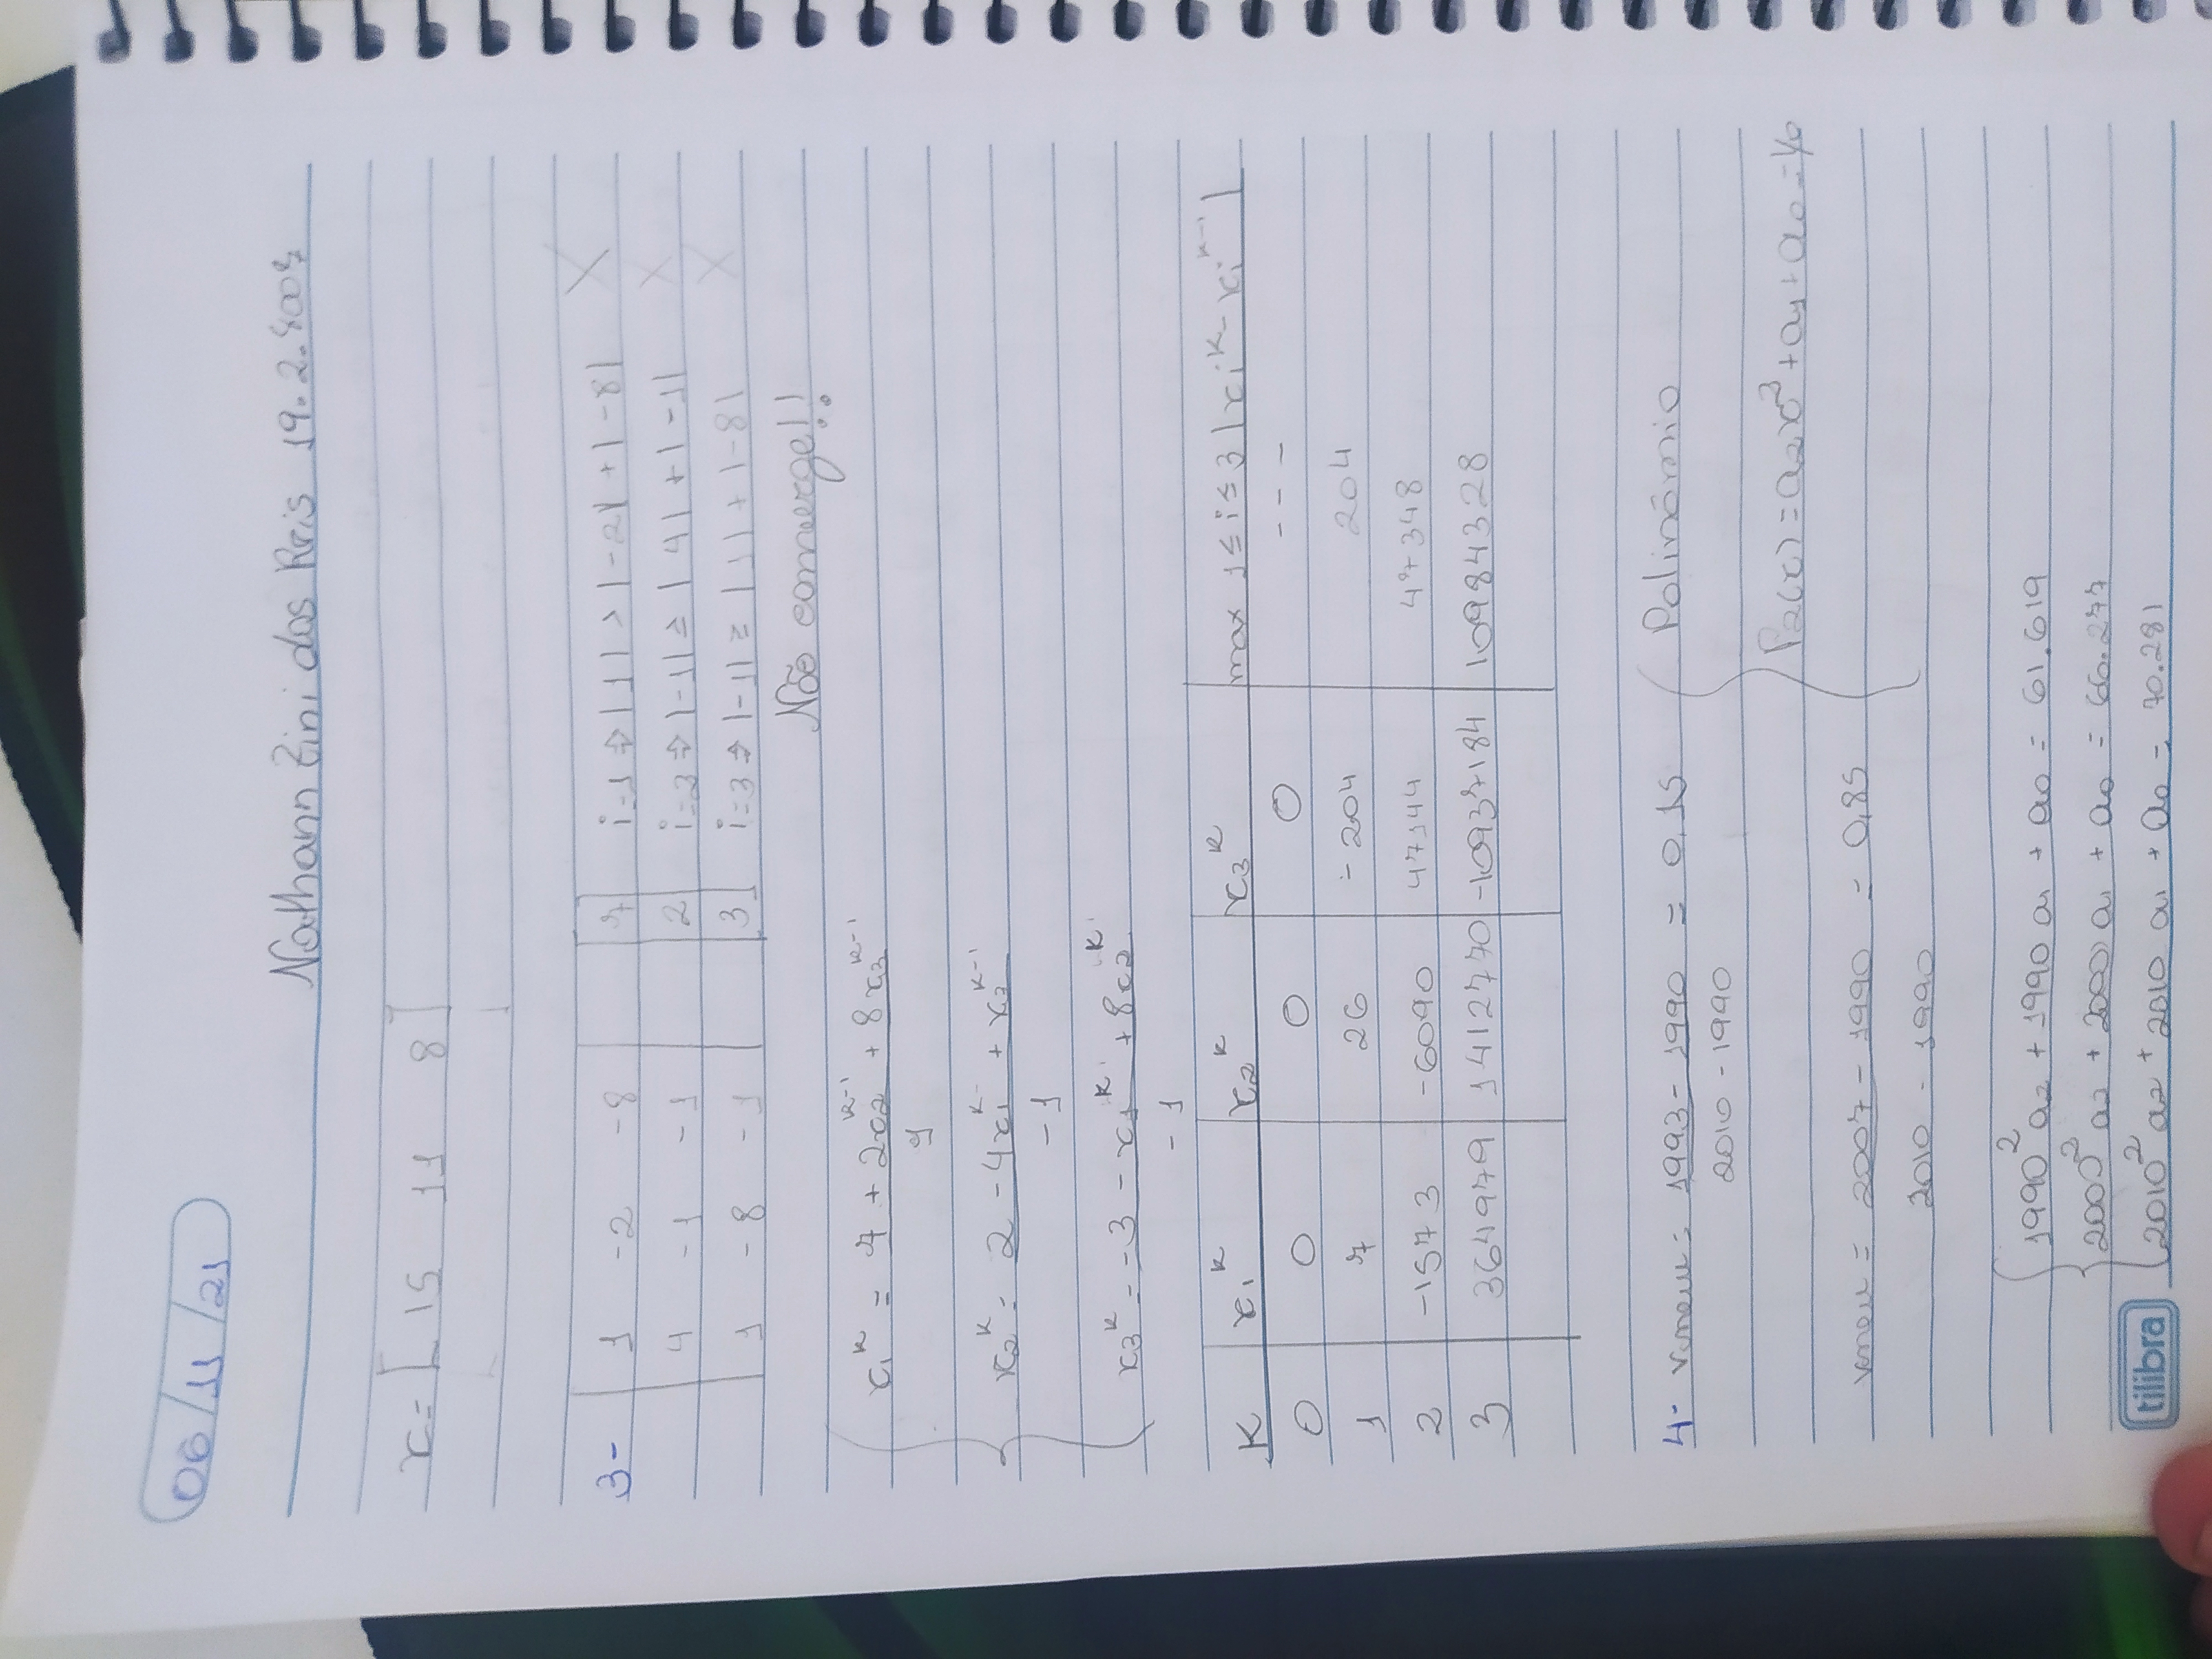 06/11/21
Nathann Zini dos Reis 19.2.8007
x = [ 15 11 8 ]
3- 1 -2 -8 7 i=1 ⇒ |1| > |-2| + |-8| X
4 -1 -1 2 i=2 ⇒ |-1| ≥ |4| + |-1| X
1 -8 -1 3 i=3 ⇒ |-1| ≥ |1| + |-8| X
Não converge!!
x₁ᵏ = 7 + 2x₂ᵏ⁻¹ + 8x₃ᵏ⁻¹
1
x₂ᵏ = 2 - 4x₁ᵏ + x₃ᵏ⁻¹
-1
x₃ᵏ = -3 - x₁ᵏ + 8x₂ᵏ
-1
K x₁ᵏ x₂ᵏ x₃ᵏ max 1≤i≤3 |xᵢᵏ - xᵢᵏ⁻¹|
0 0 0 0 ---
1 7 26 -204 204
2 -1573 -6090 47144 47348
3 364979 1412770 -10937184 10984328
4- = 1993 - 1990 = 0,15 Polinômio
2010 - 1990
P₂(x) = a₂x² + a₁ + a₀ = y₀
= 2007 - 1990 = 0,85
2010 - 1990
1990² a₂ + 1990 a₁ + a₀ = 61.619
2000² a₂ + 2000 a₁ + a₀ = 66.277
2010² a₂ + 2010 a₁ + a₀ = 70.281
tilibra